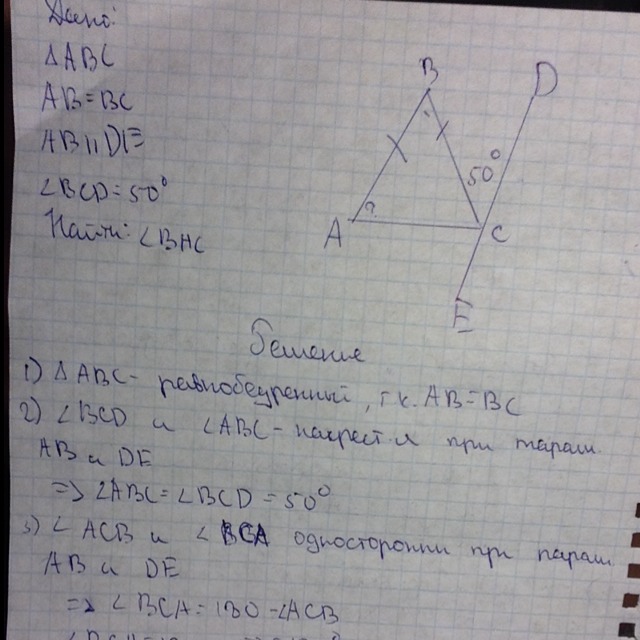 Дано:
△ABC
AB=BC
AB||DE
∠BCD=50°
Найти: ∠BAC
B
D
50°
?
A
C
E
Решение
1) △ABC - равнобедренный, т.к. AB=BC
2) ∠BCD и ∠ABC - накрест л при парал.
AB и DE
=> ∠ABC=∠BCD=50°
3) ∠ACB и ∠BCA односторонни при парал.
AB и DE
=> ∠BCA=180-∠ACB